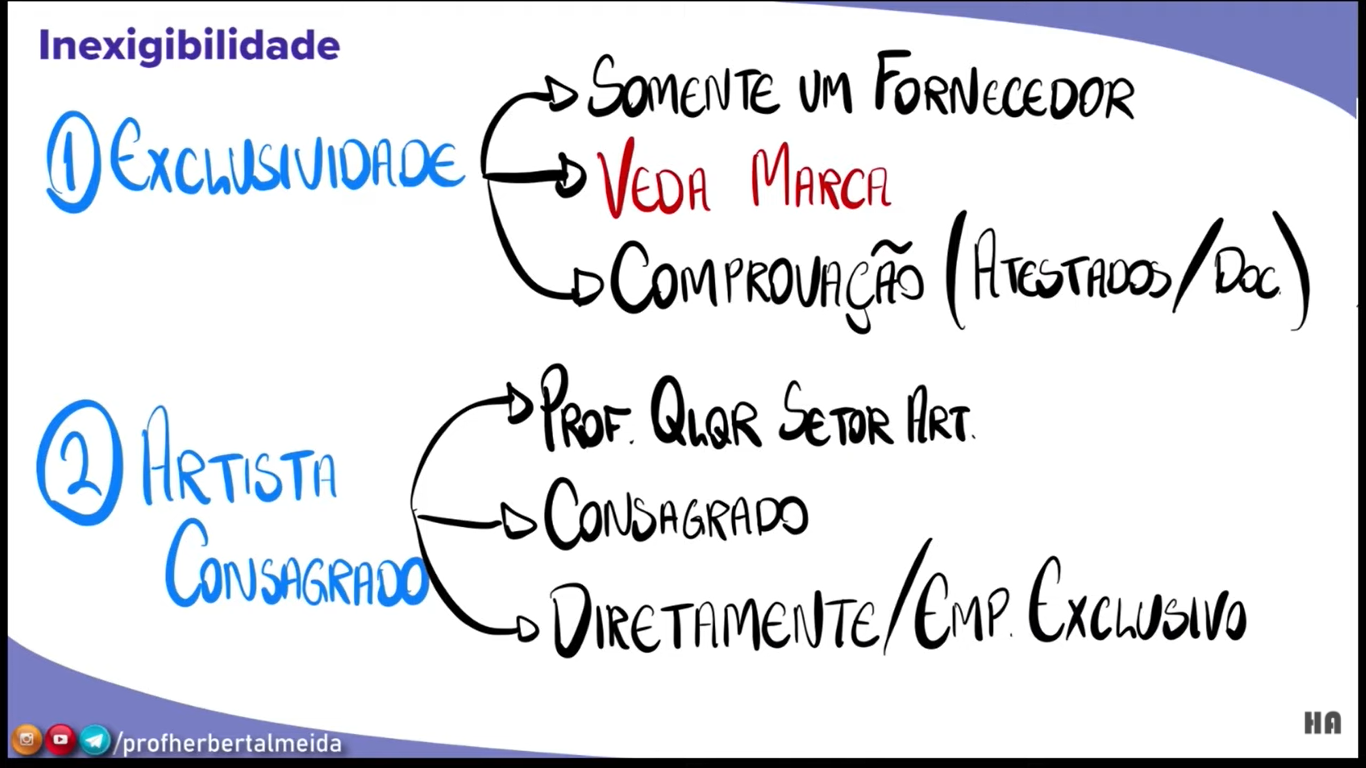 Inexigibilidade
1 EXCLUSIVIDADE
SOMENTE UM FORNECEDOR
VEDA MARCA
COMPROVAÇÃO (ATESTADOS/DOC.)
2 ARTISTA
CONSAGRADO
PROF. QLQR SETOR ART.
CONSAGRADO
DIRETAMENTE/EMP. EXCLUSIVO
/profherbertalmeida
HA